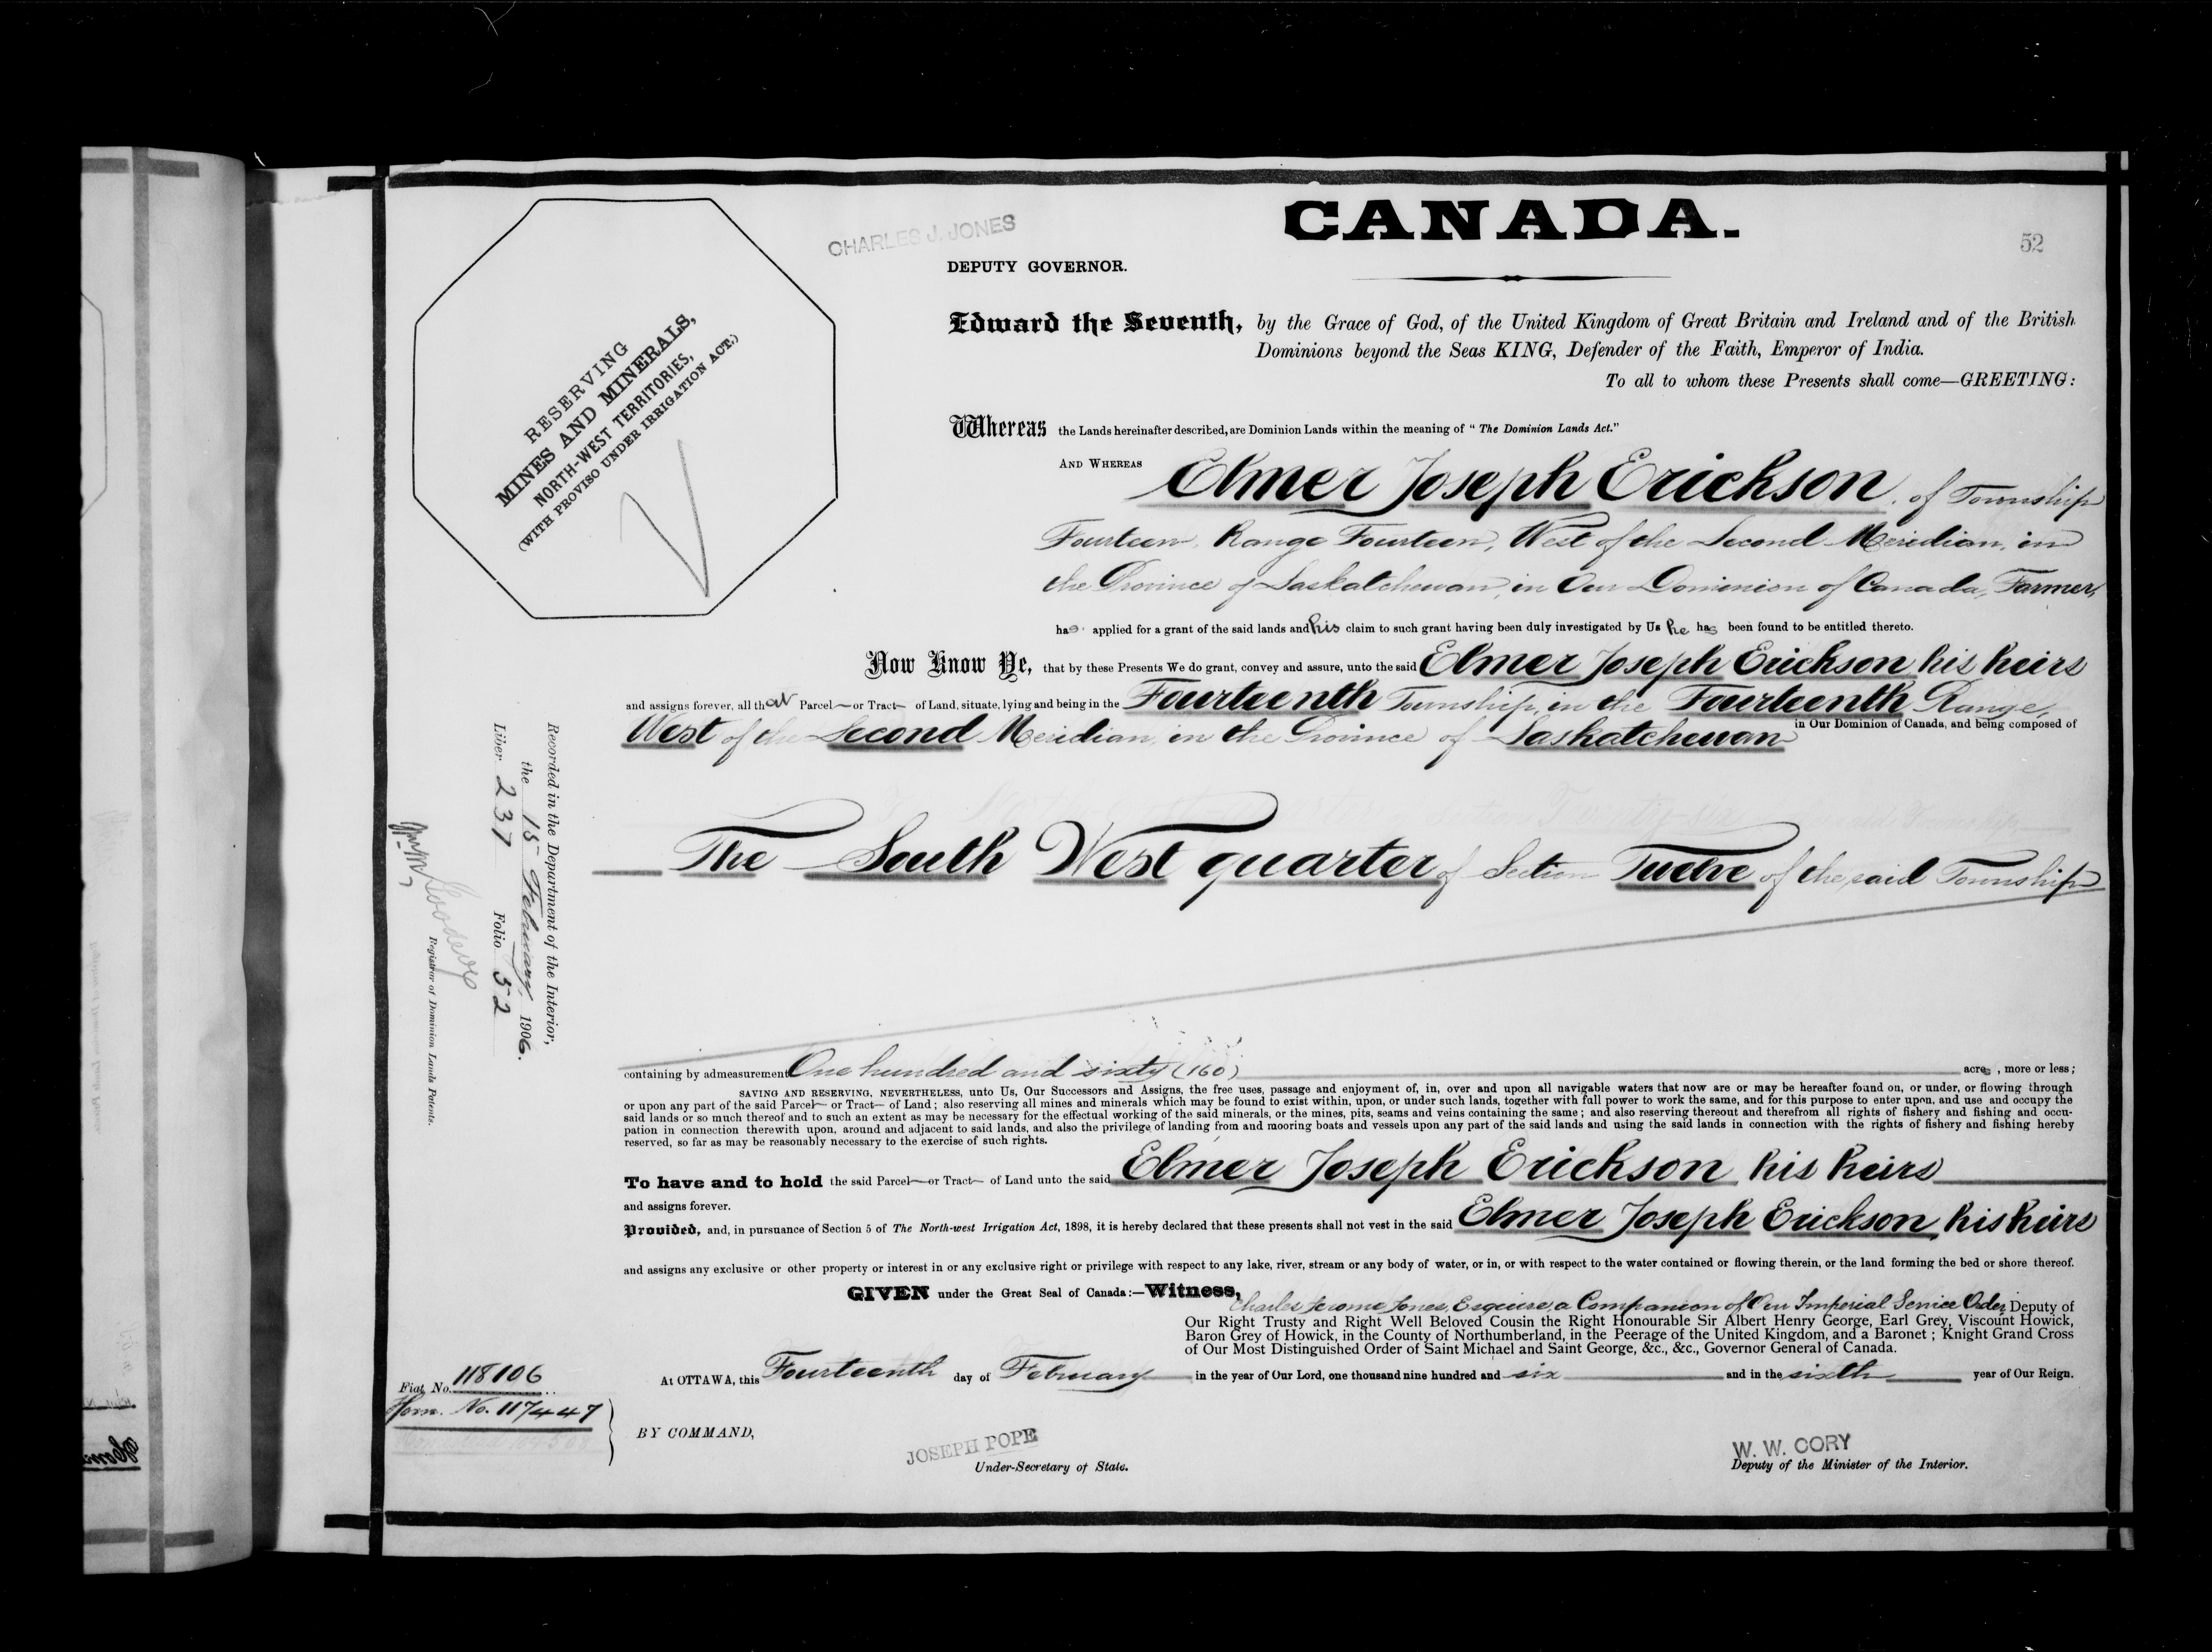 CANADA.
52
CHARLES J. JONES
DEPUTY GOVERNOR.
RESERVING
MINES AND MINERALS,
NORTH-WEST TERRITORIES,
(WITH PROVISO UNDER IRRIGATION ACT.)
Edward the Seventh, by the Grace of God, of the United Kingdom of Great Britain and Ireland and of the British
Dominions beyond the Seas KING, Defender of the Faith, Emperor of India.
To all to whom these Presents shall come—GREETING:
Whereas the Lands hereinafter described, are Dominion Lands within the meaning of "The Dominion Lands Act."
AND WHEREAS Elmer Joseph Erickson, of Township
Fourteen, Range Fourteen, West of the Second Meridian, in
the Province of Saskatchewan, in Our Dominion of Canada, Farmer,
has applied for a grant of the said lands and his claim to such grant having been duly investigated by Us he has been found to be entitled thereto.
Now Know Ye, that by these Presents We do grant, convey and assure, unto the said Elmer Joseph Erickson his heirs
and assigns forever, all that Parcel or Tract of Land, situate, lying and being in the Fourteenth Township, in the Fourteenth Range,
West of the Second Meridian, in the Province of Saskatchewan in Our Dominion of Canada, and being composed of
The South West quarter of Section Twelve of the said Township
containing by admeasurement One hundred and sixty (160) acres, more or less;
SAVING AND RESERVING, NEVERTHELESS, unto Us, Our Successors and Assigns, the free uses, passage and enjoyment of, in, over and upon all navigable waters that now are or may be hereafter found on, or under, or flowing through
or upon any part of the said Parcel or Tract of Land; also reserving all mines and minerals which may be found to exist within, upon, or under such lands, together with full power to work the same, and for this purpose to enter upon, and use and occupy the
said lands or so much thereof and to such an extent as may be necessary for the effectual working of the said minerals, or the mines, pits, seams and veins containing the same; and also reserving thereout and therefrom all rights of fishery and fishing and occu-
pation in connection therewith upon, around and adjacent to said lands, and also the privilege of landing from and mooring boats and vessels upon any part of the said lands and using the said lands in connection with the rights of fishery and fishing hereby
reserved, so far as may be reasonably necessary to the exercise of such rights.
To have and to hold the said Parcel or Tract of Land unto the said Elmer Joseph Erickson his heirs
and assigns forever.
Provided, and, in pursuance of Section 5 of The North-west Irrigation Act, 1898, it is hereby declared that these presents shall not vest in the said Elmer Joseph Erickson, his heirs
and assigns any exclusive or other property or interest in or any exclusive right or privilege with respect to any lake, river, stream or any body of water, or in, or with respect to the water contained or flowing therein, or the land forming the bed or shore thereof.
GIVEN under the Great Seal of Canada:—Witness,
Charles Jerome Jones, Esquire, a Companion of Our Imperial Service Order, Deputy of
Our Right Trusty and Right Well Beloved Cousin the Right Honourable Sir Albert Henry George, Earl Grey, Viscount Howick,
Baron Grey of Howick, in the County of Northumberland, in the Peerage of the United Kingdom, and a Baronet; Knight Grand Cross
of Our Most Distinguished Order of Saint Michael and Saint George, &c., &c., Governor General of Canada.
At OTTAWA, this Fourteenth day of February in the year of Our Lord, one thousand nine hundred and six and in the sixth year of Our Reign.
BY COMMAND,
JOSEPH POPE
Under-Secretary of State.
W. W. CORY
Deputy of the Minister of the Interior.
Fiat No. 118106
Hom. No. 117447
Recorded in the Department of the Interior,
the 15 February 1906.
Liber 237 Folio 52
Registrar of Dominion Lands Patents.